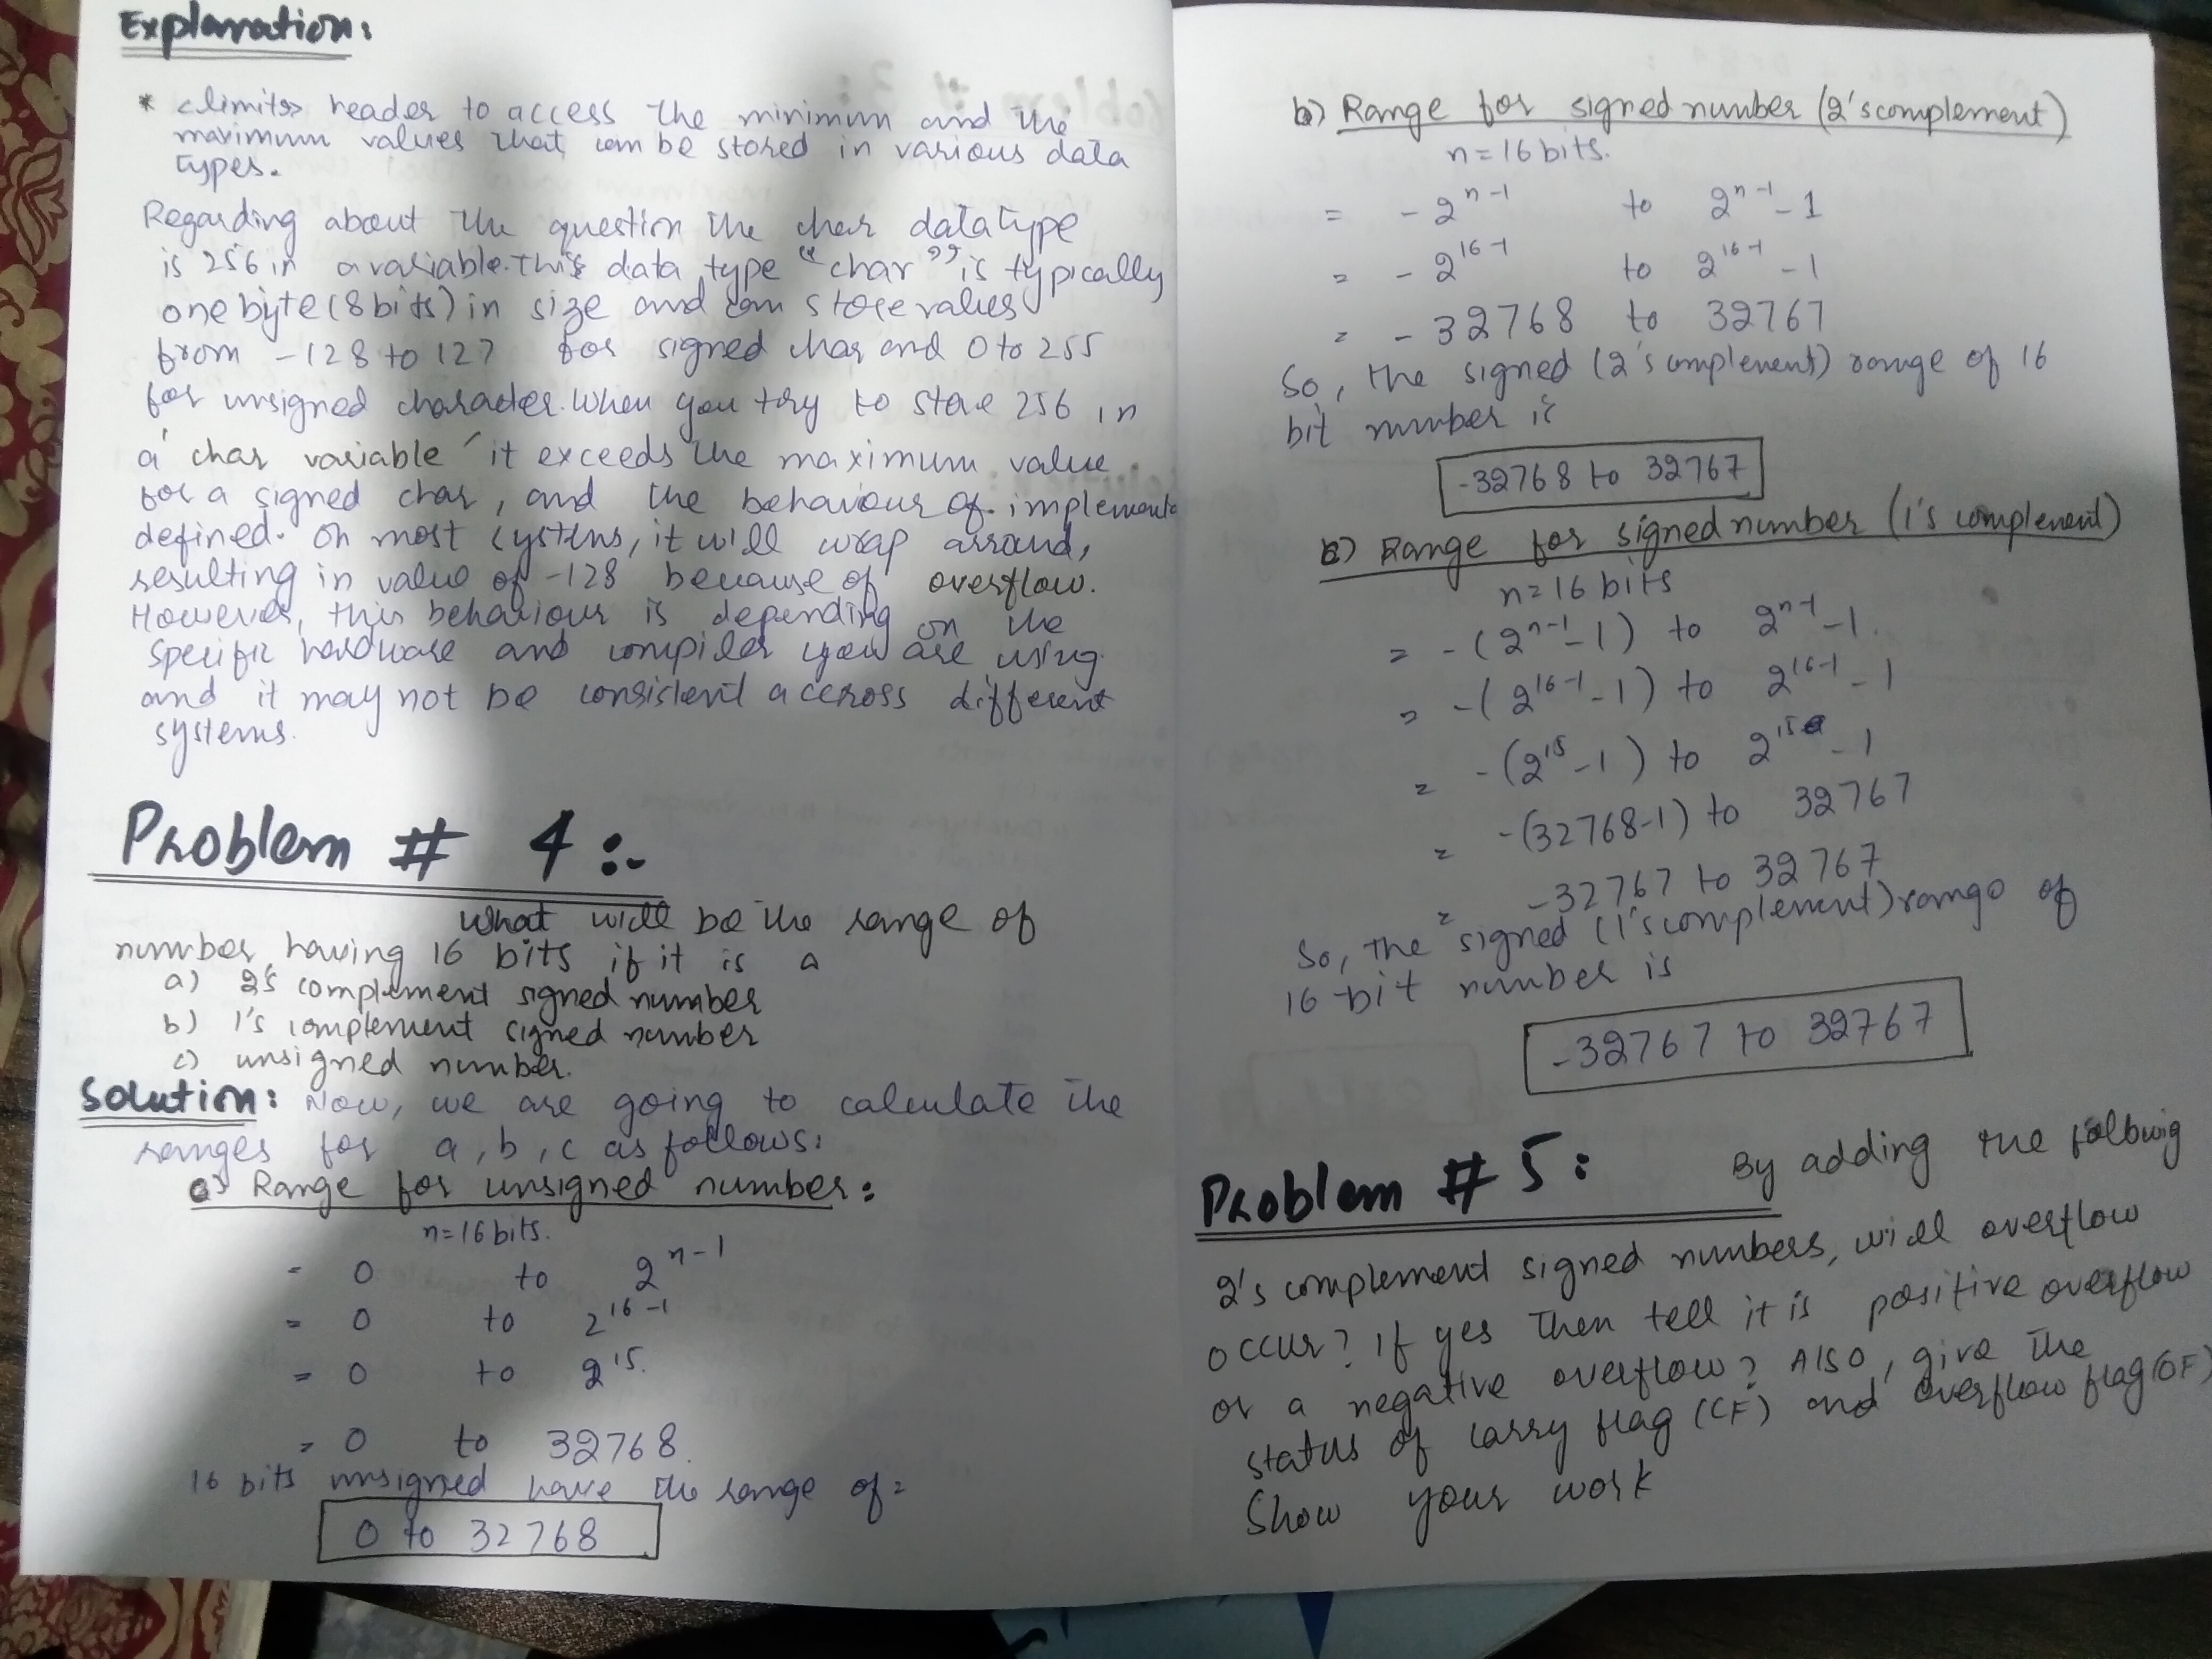 Explanation:
* <limits> header to access the minimum and the
maximum values that can be stored in various data
types.
Regarding about the question the char datatype
is 256 in a variable. This data type "char" is typically
one byte (8 bits) in size and can store values
from -128 to 127 for signed char and 0 to 255
for unsigned character. When you try to store 256 in
a 'char variable' it exceeds the maximum value
for a signed char, and the behaviour of implement
defined. On most systems, it will wrap arround,
resulting in value of -128 because of overflow.
However, this behaviour is depending on the
specific hardware and compiler you are using
and it may not be consistent accross different
systems.
Problem # 4 :-
What will be the range of
number having 16 bits if it is a
a) 2's complement signed number
b) 1's complement signed number
c) unsigned number.
Solution: Now, we are going to calculate the
ranges for a, b, c as follows:
c) Range for unsigned number:
n=16 bits.
= 0 to 2^n-1
= 0 to 2^16-1
= 0 to 2^15.
= 0 to 32768.
16 bits unsigned have the range of=
0 to 32768
b) Range for signed number (2's complement)
n=16 bits.
= -2^n-1 to 2^n-1 - 1
= -2^16-1 to 2^16-1 - 1
= -32768 to 32767
So, the signed (2's complement) range of 16
bit number is
-32768 to 32767
c) Range for signed number (1's complement)
n=16 bits
= -(2^n-1 - 1) to 2^n-1 - 1.
= -(2^16-1 - 1) to 2^16-1 - 1
= -(2^15 - 1) to 2^15 - 1
= -(32768-1) to 32767
= -32767 to 32767
So, the signed (1's complement) range of
16 bit number is
-32767 to 32767
Problem # 5: By adding the following
2's complement signed numbers, will overflow
occur? If yes then tell it is positive overflow
or a negative overflow? Also, give the
status of carry flag (CF) and overflow flag (OF)
Show your work